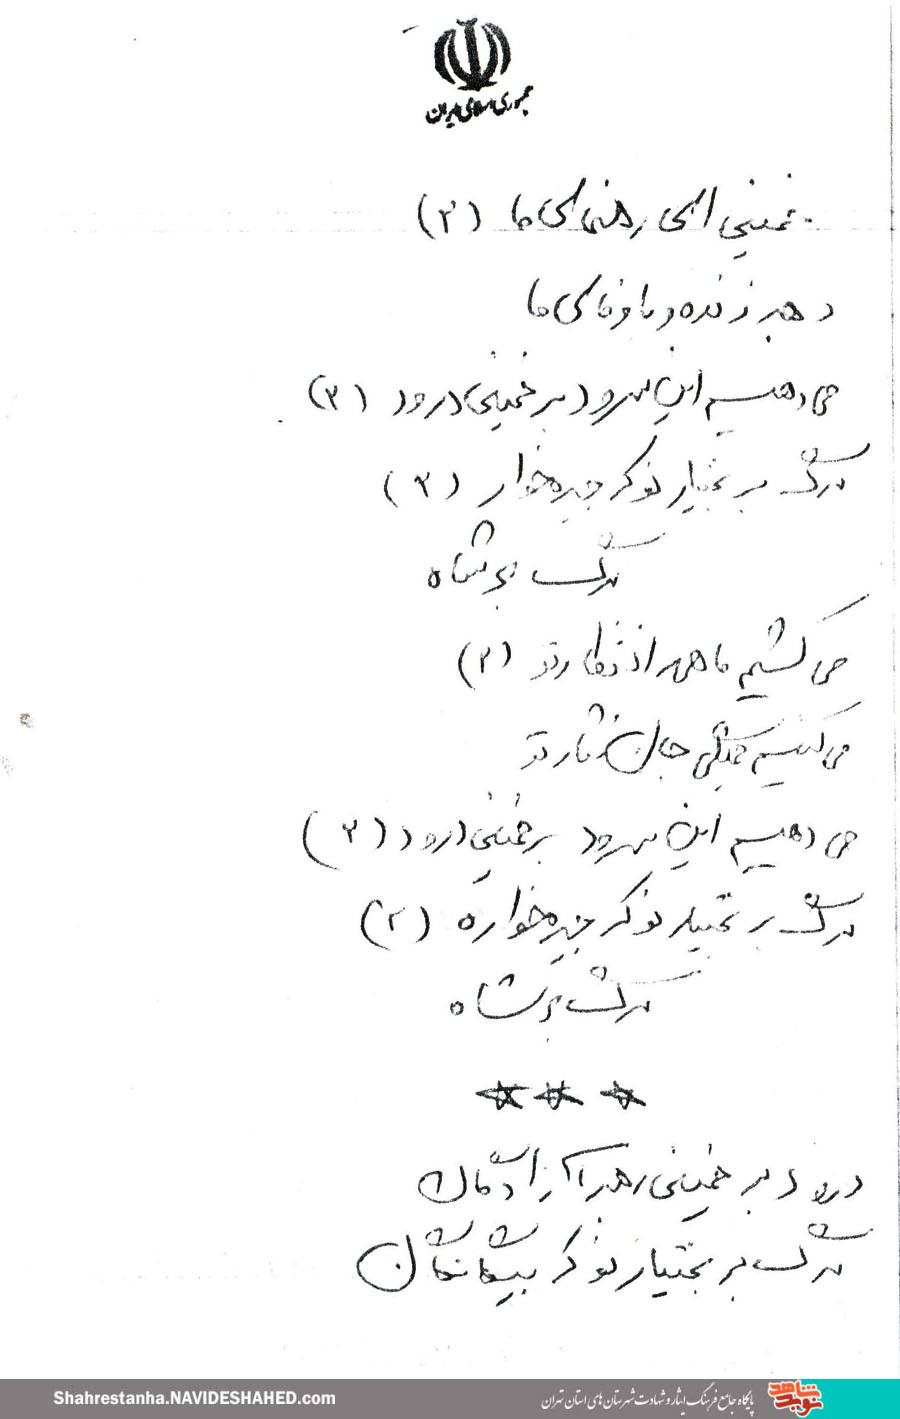 جمهوری اسلامی ایران
خمینی ای رهنمای ما (۲)
رهبر زنده و با وفای ما
می دهیم این سرود بر خمینی درود (۲)
مرگ بر بختیار نوکر جیره خوار (۲)
مرگ بر شاه
می کشیم ما همه انتظار تو (۲)
می کنیم جملگی جان نثار تو
می دهیم این سرود بر خمینی درود (۲)
مرگ بر بختیار نوکر جیره خواره (۲)
مرگ بر شاه
درود بر خمینی رهبر آزادگان
مرگ بر بختیار نوکر بیگانگان
Shahrestanha.NAVIDESHAHED.com
پایگاه جامع فرهنگ ایثار و شهادت شهرستان های استان تهران
نوید شاهد